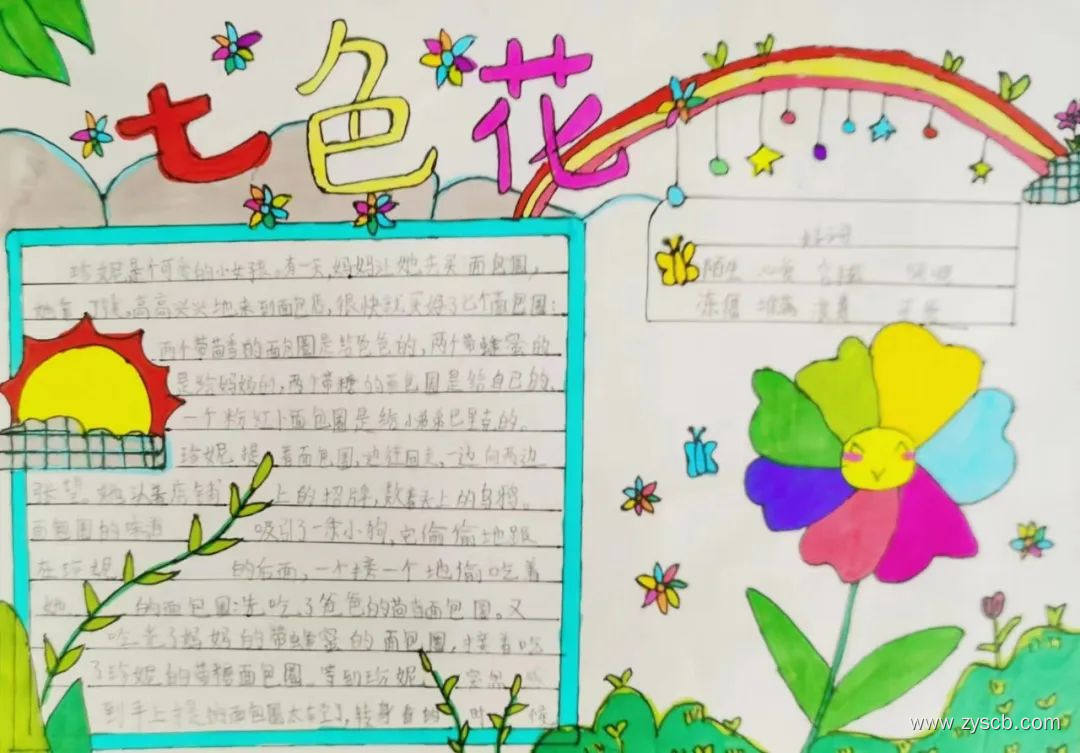 七色花
珍妮是个可爱的小女孩。有一天,妈妈让她去买面包圈,
她拿了钱,高高兴兴地来到面包店,很快就买好了七个面包圈:
两个带茴香的面包圈是给爸爸的,两个带蜂蜜的
是给妈妈的,两个带糖的面包圈是给自己的,
一个粉红小面包圈是给小弟弟巴里克的。
珍妮提着面包圈,边往回走,一边向两边
张望。她认着店铺上的招牌,数着天上的乌鸦。
面包圈的味道吸引了一条小狗,它偷偷地跟
在珍妮的后面,一个接一个地偷吃着
她的面包圈:先吃了爸爸的茴香面包圈。又
吃完了妈妈的带蜂蜜的面包圈,接着吃
了珍妮的带糖面包圈。等到珍妮突然感
到手上提的面包圈太轻了,转身看的时候
好词
陌生
冻僵
www.zyscb.com